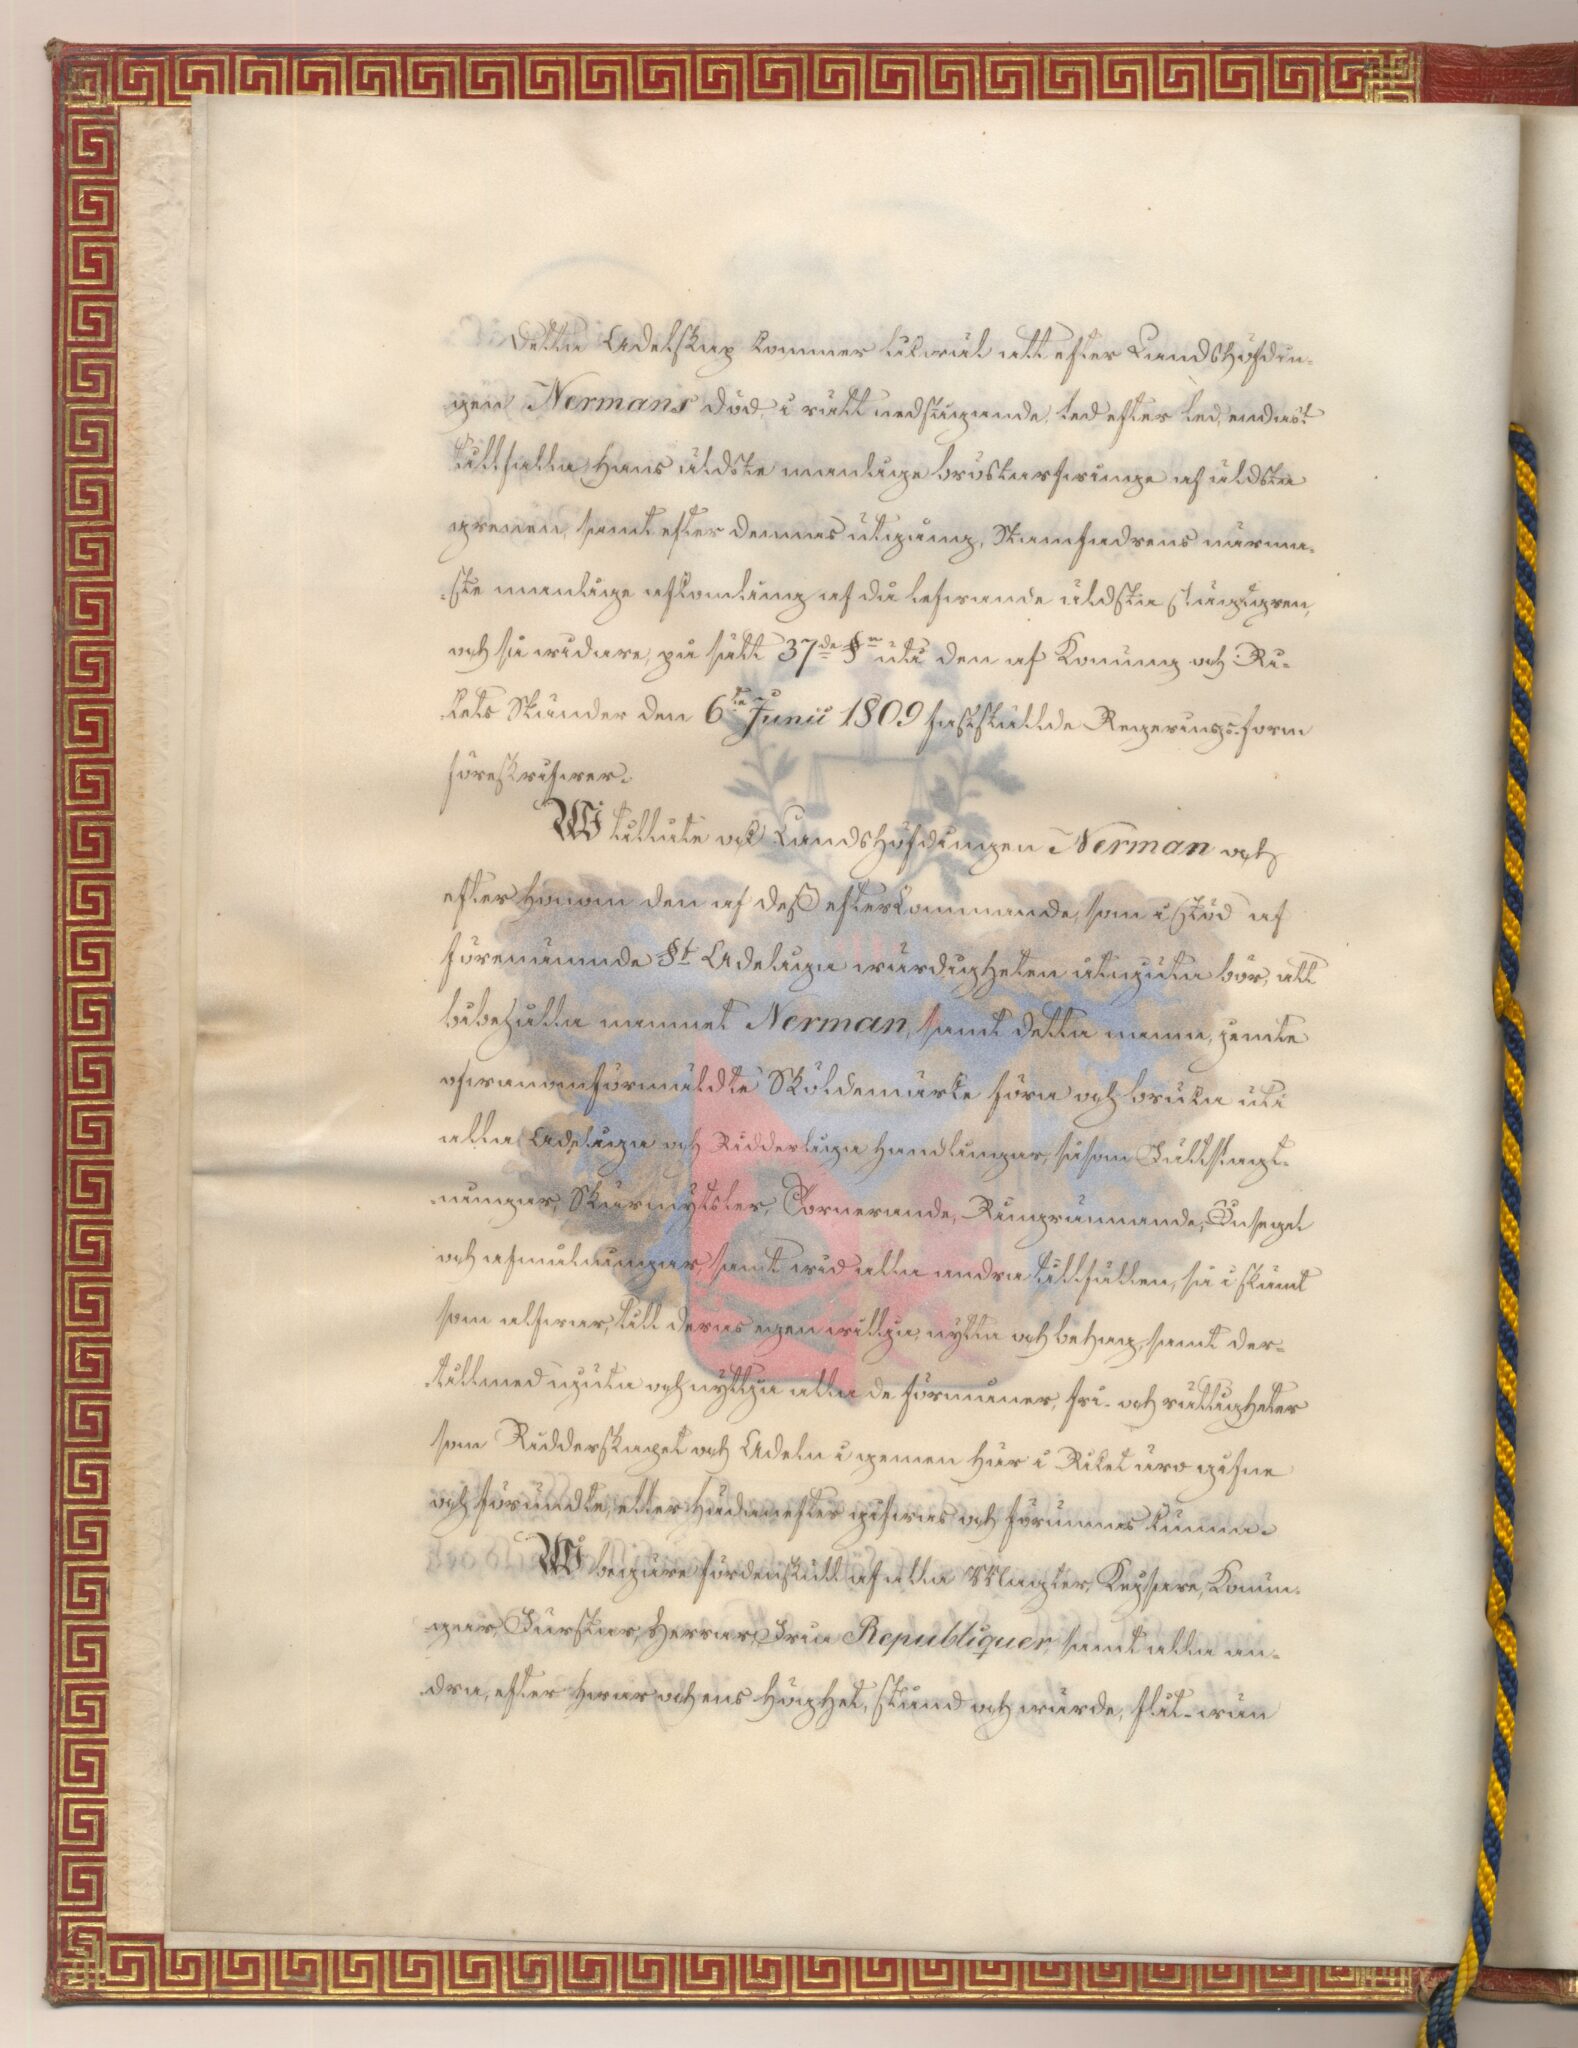 Detta Adelskap kommer likwäl att efter Landshöfdin-
gen Nermans död, i rätt nedstigande led efter led, endast
tillfalla Hans äldste manlige bröstarfwinge af äldsta
grenen, samt efter dennes utgång, Stamfadrens närma-
ste manlige afkomling af då lefwande äldsta slägtgren,
och så widare, på sätt 37de §n uti den af Konung och Ri-
kets Ständer den 6te Junii 1809 fastställde Regerings-form
föreskrifwer.
Wi tillåte ock Landshöfdingen Nerman och
efter Honom den af deß efterkommande, som i stöd af
förenämnde §t Adeliga wärdigheten åtnjuta bör, att
bibehålla namnet Nerman, samt detta namn, jemte
ofwananförmäldte Sköldemärke föra och bruka uti
alla Adeliga och Ridderliga Handlingar, såsom Fältslagt-
ningar, Skärmytsler, Tornerande, Ringrännande, Insegel
och afmålningar, samt wid alla andra tillfällen, så i skämt
som alfwar, till deras egen wilja, nytta och behag, samt der-
tillmed njuta och nyttja alla de förmåner, fri- och rättigheter
som Ridderskapet och Adeln i gemen här i Riket äro gifne
och förundte, eller hädanefter gifwas och förunnas kunna.
Wi begäre fördenskull af alla Magter, Kejsare, Konun-
gar, Furstar, Herrar, Fria Republiquer, samt alla an-
dra, efter hwar och ens Höghet, stånd och wärde, flit-wän